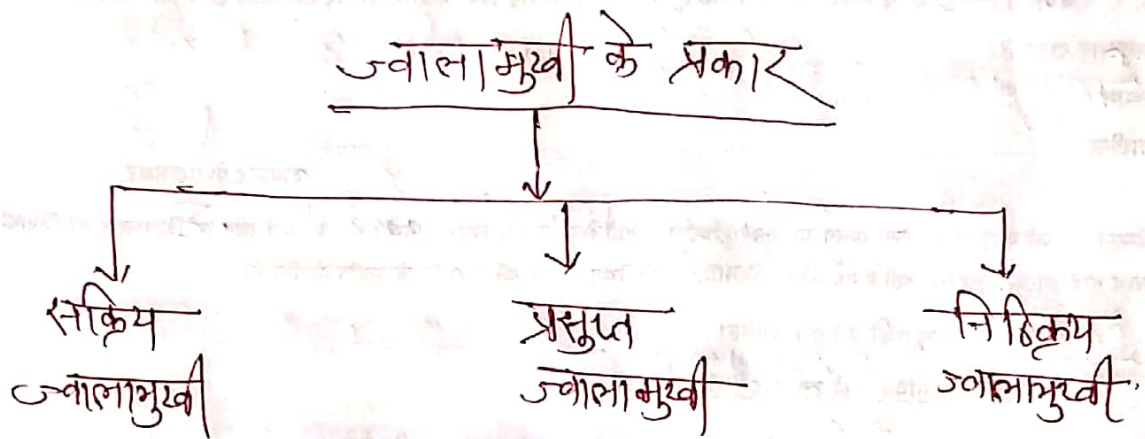 ज्वालामुखी के प्रकार
सक्रिय
ज्वालामुखी
प्रसुप्त
ज्वालामुखी
निष्क्रिय
ज्वालामुखी